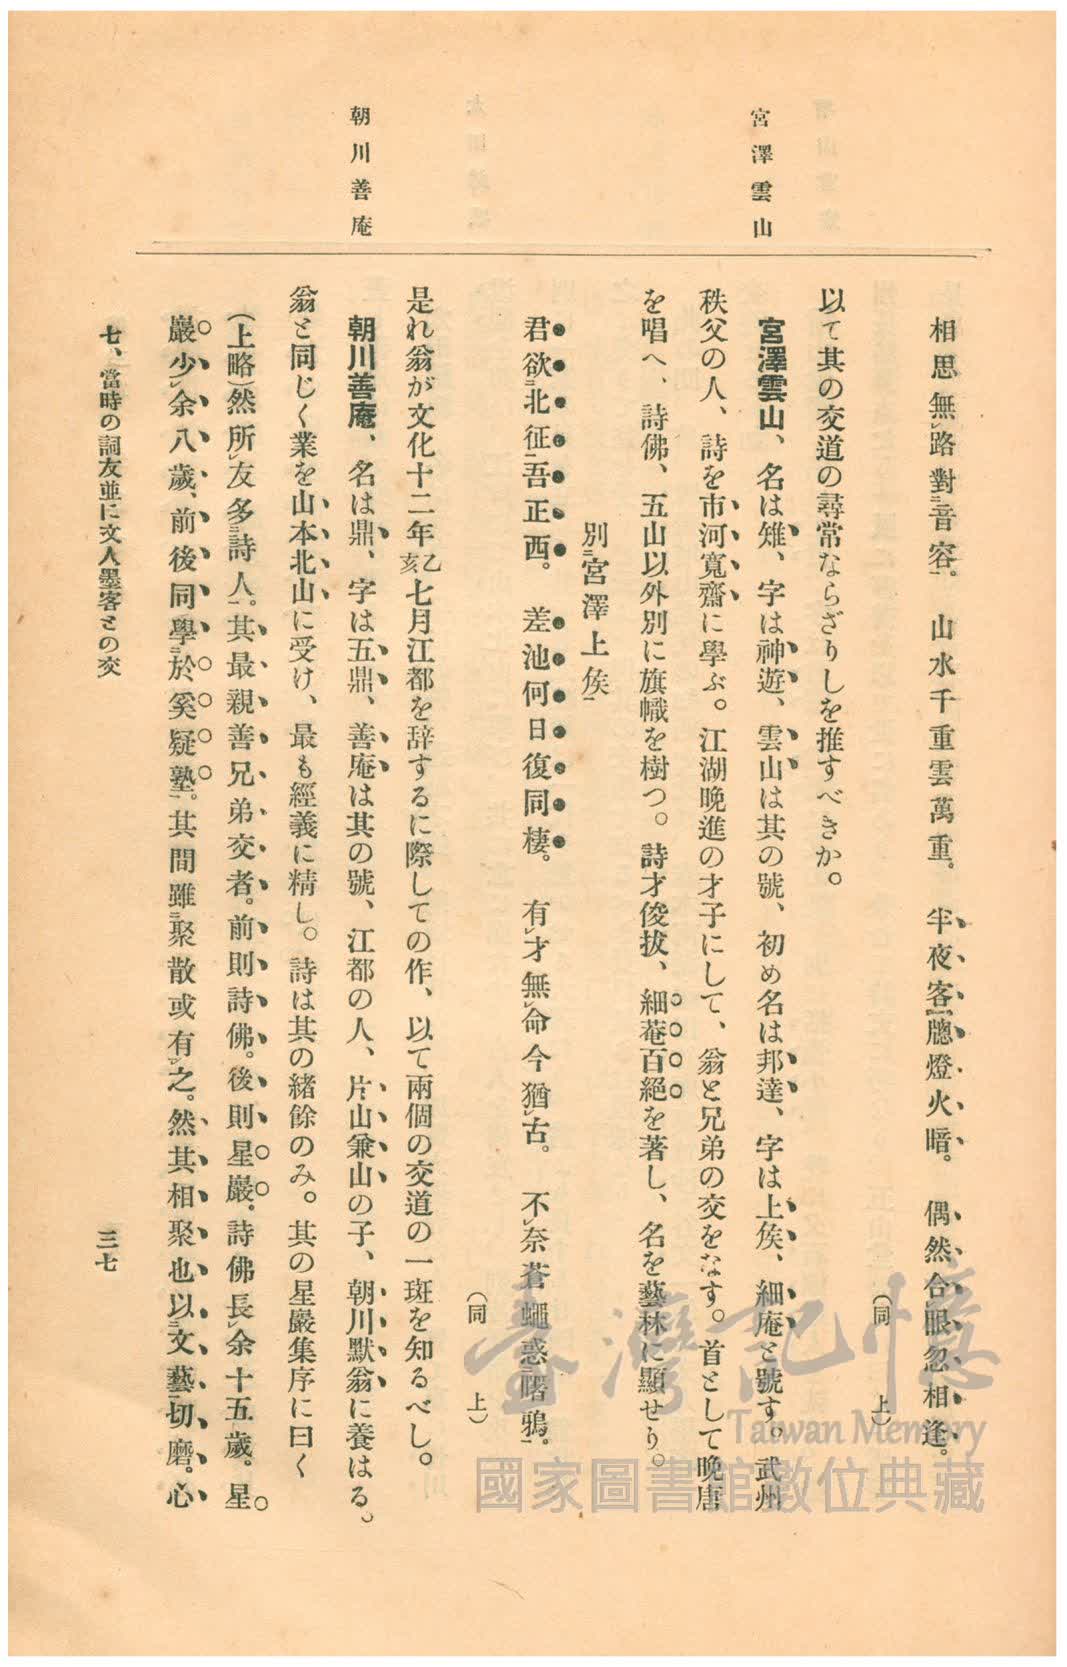 宮澤雲山
朝川善庵
相思無㆑路對㆓音容㆒。山水千重雲萬重。半夜客牕燈火暗。偶然合㆑眼忽相逢。
（同上）
以て其の交道の尋常ならざりしを推すべきか。
宮澤雲山、名は雉、字は神遊、雲山は其の號、初め名は邦達、字は上矦、細庵と號す。武州
秩父の人、詩を市河寬齋に學ぶ。江湖晩進の才子にして、翁と兄弟の交をなす。首として晩唐
を唱へ、詩佛、五山以外別に旗幟を樹つ。詩才俊拔、細菴百絕を著し、名を藝林に顯せり。
別㆓宮澤上矦㆒
君欲㆓北征㆒吾正西。差池何日復同棲。有㆑才無㆑命今猶㆑古。不㆑奈蒼蠅惑㆓曙鴉㆒。
（同上）
是れ翁が文化十二年乙亥七月江都を辞するに際しての作、以て兩個の交道の一斑を知るべし。
朝川善庵、名は鼎、字は五鼎、善庵は其の號、江都の人、片山兼山の子、朝川默翁に養はる。
翁と同じく業を山本北山に受け、最も經義に精し。詩は其の緖餘のみ。其の星巖集序に曰く
（上略）然所㆑友多㆓詩人㆒。其最親善兄弟交者。前則詩佛。後則星巖。詩佛長㆑余十五歲。星
巖少㆑余八歲、前後同學㆓於奚疑塾㆒。其間雖㆓聚散或有㆑之。然其相聚也以㆓文藝㆒切磨。心
七、當時の詞友並に文人墨客との交
三七
臺灣記憶
Taiwan Memory
國家圖書館數位典藏